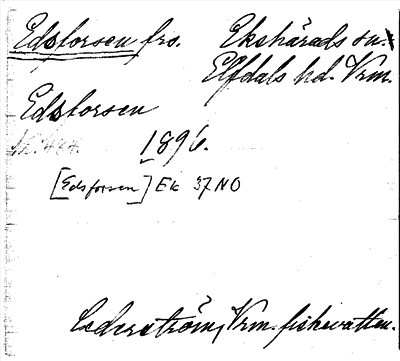 Edsforsen frs. Ekshärads sn.
Elfdals hd. Vrm.
Edsforsen
1896.
[Edsforsen] Ek 37 NO
Cederström, Vrm. fiskevatten.